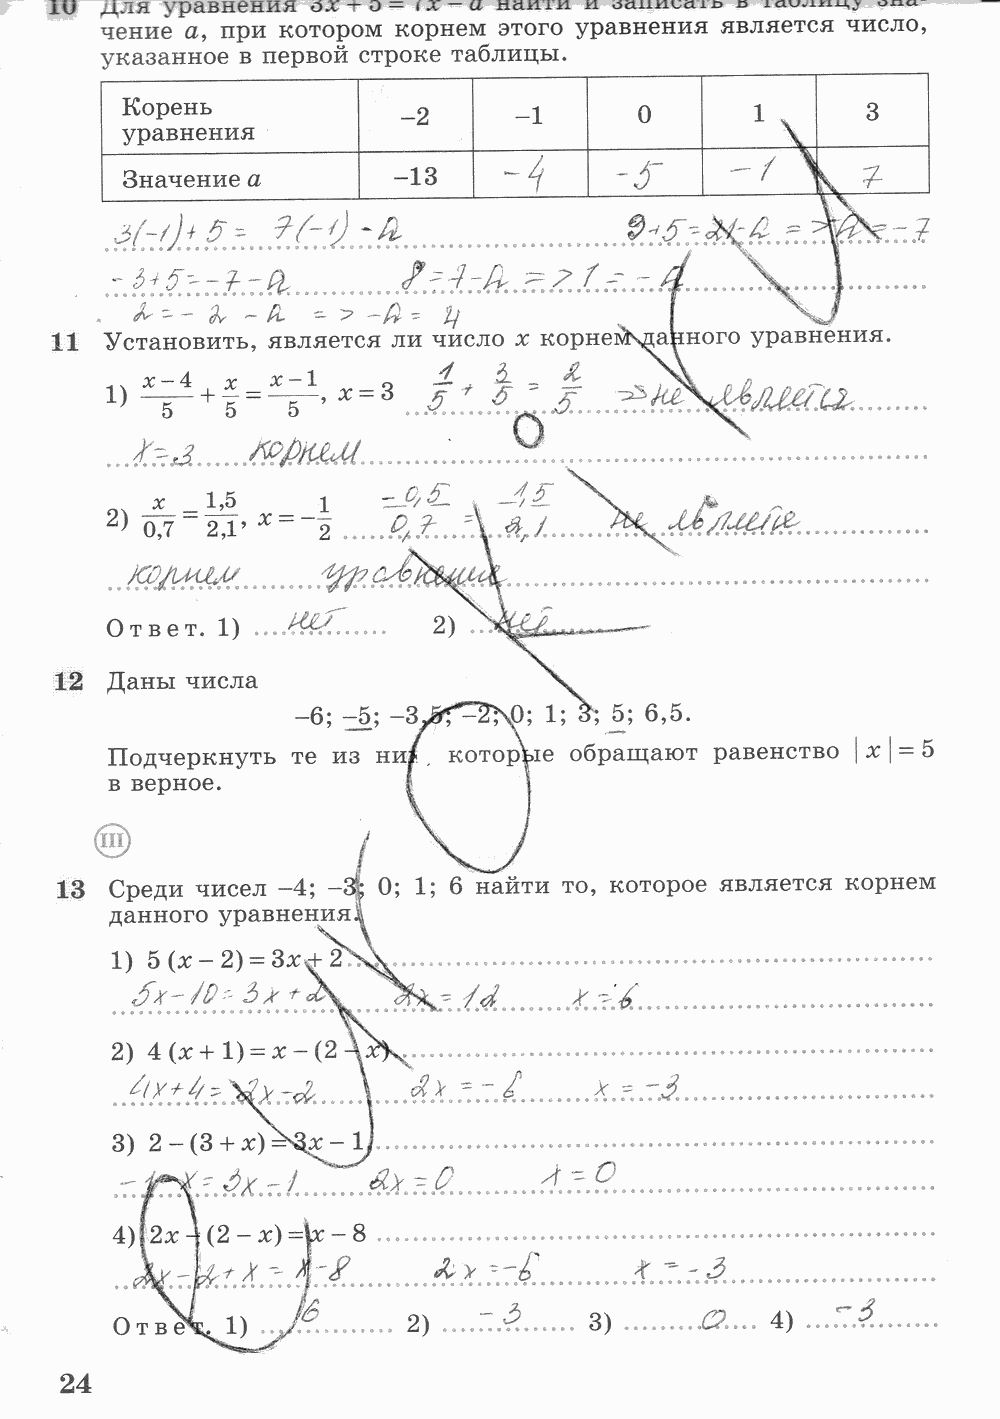 10 Для уравнения 3x + 5 = 7x − a найти и записать в таблицу зна-
чение a, при котором корнем этого уравнения является число,
указанное в первой строке таблицы.
Корень уравнения −2 −1 0 1 3
Значение a −13 −4 −5 −1 7
3(−1)+5 = 7(−1) − a 9+5=21−a => a = −7
−3+5=−7−a 8=7−a => 1 = −a
2 = −2 − a => −a = 4
11 Установить, является ли число x корнем данного уравнения.
1) (x−4)/5 + x/5 = (x−1)/5, x = 3 1/5 + 3/5 = 2/5 => не является
x=3 корнем
2) x/0,7 = 1,5/2,1, x = −1/2 −0,5/0,7 = 1,5/2,1 не является
корнем уравнения
Ответ. 1) нет 2) нет
12 Даны числа
−6; −5; −3,5; −2; 0; 1; 3; 5; 6,5.
Подчеркнуть те из них, которые обращают равенство |x| = 5
в верное.
III
13 Среди чисел −4; −3; 0; 1; 6 найти то, которое является корнем
данного уравнения.
1) 5 (x − 2) = 3x + 2
5x−10=3x+2 2x=12 x=6
2) 4 (x + 1) = x − (2 − x)
4x+4=2x−2 2x=−6 x=−3
3) 2 − (3 + x) = 3x − 1
−1−x=3x−1 2x=0 x=0
4) 2x − (2 − x) = x − 8
2x−2+x=x−8 2x=−6 x=−3
Ответ. 1) 6 2) −3 3) 0 4) −3
24